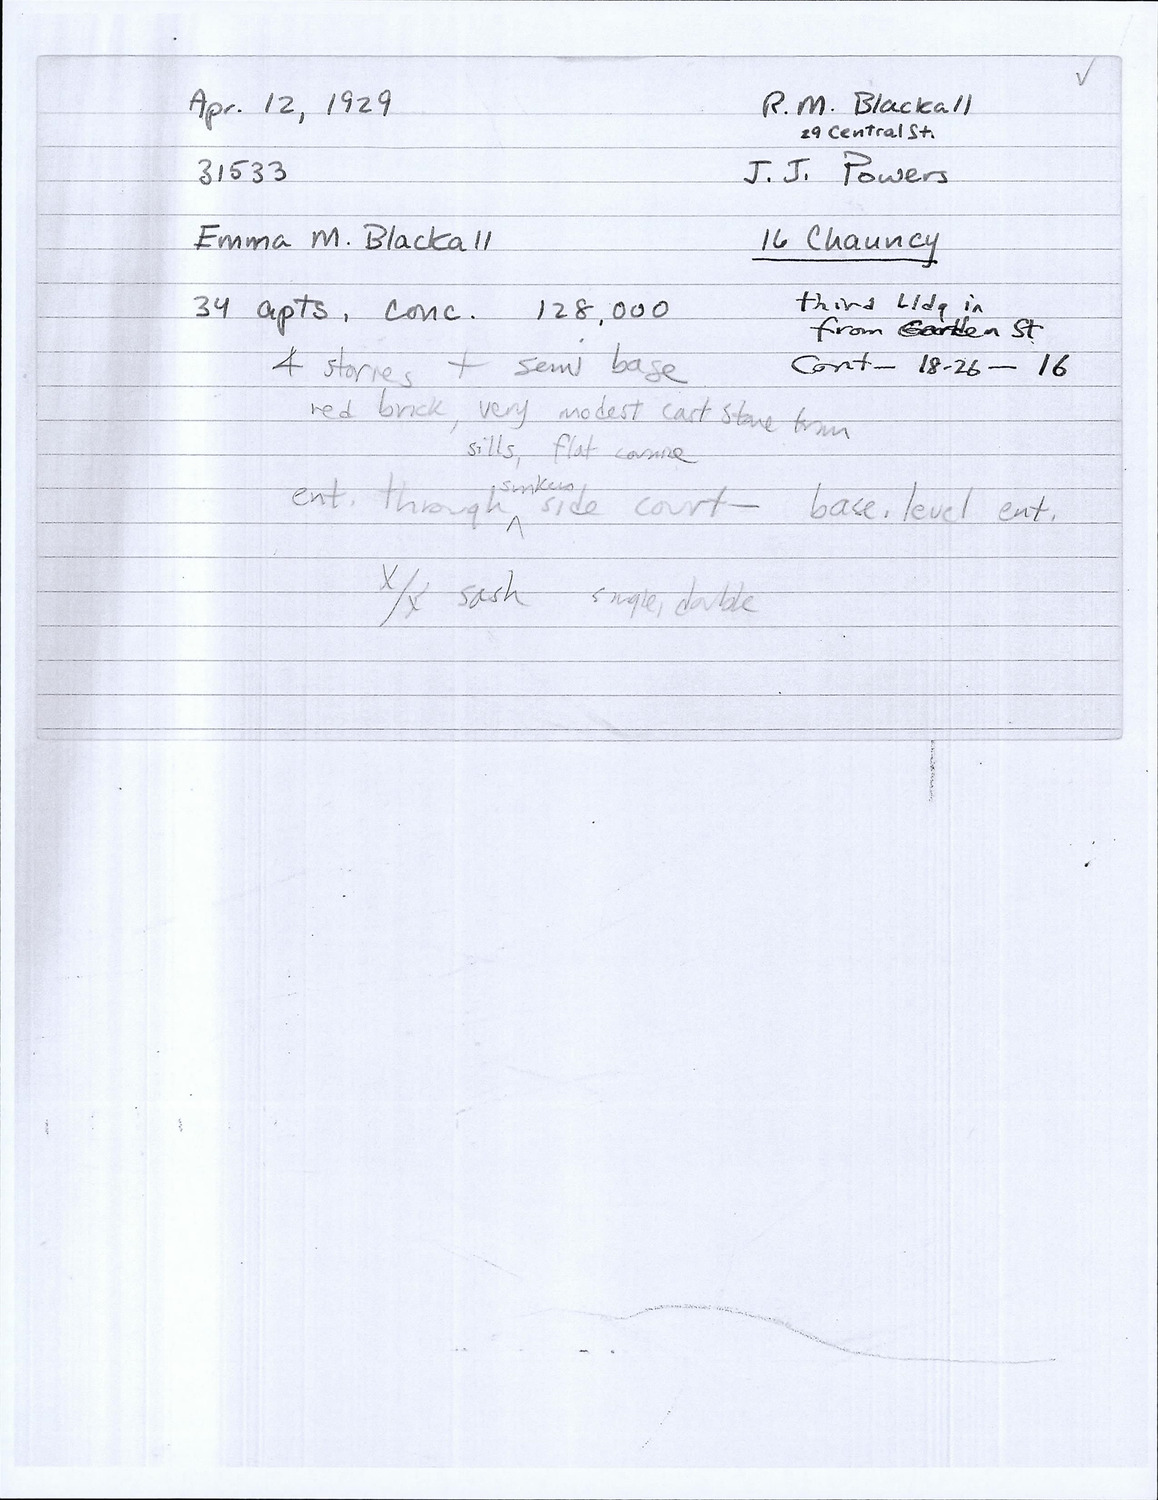 Apr. 12, 1929
R. M. Blackall
29 Central St.
31533
J. J. Powers
Emma M. Blackall
16 Chauncy
34 apts, conc. 128,000
third bldg in
from Garden St
4 stories + semi base
Cont— 18-26 — 16
red brick, very modest cast stone trim
sills, flat cornice
ent. through sunken side court — base. level ent.
X/X sash single, double